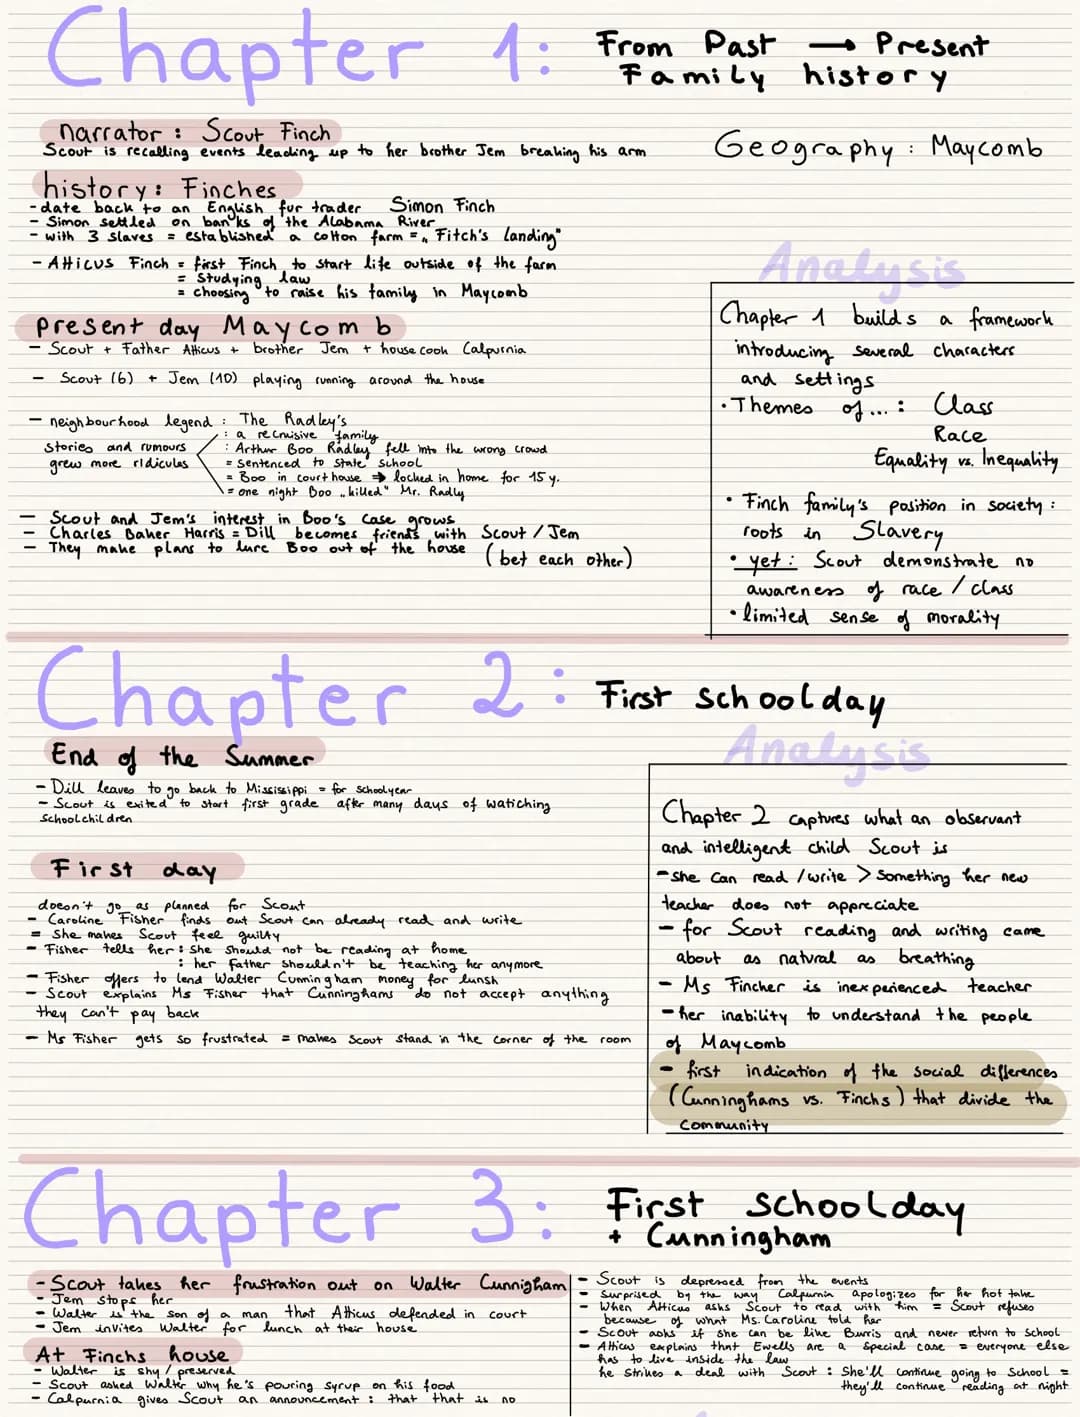 Chapter 1: From Past → Present
Family history
narrator: Scout Finch
Scout is recalling events leading up to her brother Jem breaking his arm
Geography: Maycomb
history: Finches
- date back to an English fur trader Simon Finch
- Simon settled on banks of the Alabama River
- with 3 slaves = established a cotton farm = „Fitch's landing"
- Atticus Finch = first Finch to start life outside of the farm
= studying law
= choosing to raise his family in Maycomb
present day Maycomb
- Scout + Father Atticus + brother Jem + house cook Calpurnia
- Scout (6) + Jem (10) playing running around the house
- neighbourhood legend: The Radley's
stories and rumours
grew more ridiculas
: a recruisive family
: Arthur Boo Radley fell into the wrong crowd
= sentenced to state school
= Boo in court house → locked in home for 15 y.
= one night Boo „killed" Mr. Radly
- Scout and Jem's interest in Boo's case grows
- Charles Baker Harris = Dill becomes friends with Scout / Jem
- They make plans to lure Boo out of the house (bet each other)
Analysis
Chapter 1 builds a framework
introducing several characters
and settings
• Themes of...: Class
Race
Equality vs. Inequality
• Finch family's position in society:
roots in Slavery
• yet: Scout demonstrate no
awareness of race / class
• limited sense of morality
Chapter 2: First schoolday
End of the Summer
- Dill leaves to go back to Mississippi = for schoolyear
- Scout is exited to start first grade after many days of watiching
schoolchildren
First day
doesn't go as planned for Scout
- Caroline Fisher finds out Scout can already read and write
= She makes Scout feel guilty
- Fisher tells her: she should not be reading at home
: her father shouldn't be teaching her anymore
- Fisher offers to lend Walter Cunningham money for lunsh
- Scout explains Ms Fisher that Cunninghams do not accept anything
they can't pay back
- Ms Fisher gets so frustrated = makes Scout stand in the corner of the room
Analysis
Chapter 2 captures what an observant
and intelligent child Scout is
- she can read / write > something her new
teacher does not appreciate
- for Scout reading and writing came
about as natural as breathing
- Ms Fincher is inexperienced teacher
- her inability to understand the people
of Maycomb
- first indication of the social differences
(Cunninghams vs. Finchs) that divide the
community
Chapter 3: First schoolday
+ Cunningham
- Scout takes her frustration out on Walter Cunnigham
- Jem stops her
- Walter is the son of a man that Atticus defended in court
- Jem invites Walter for lunch at their house
At Finchs house
- Walter is shy / preserved
- Scout asked Walter why he's pouring syrup on his food
- Calpurnia gives Scout an announcement: that that is no
- Scout is depressed from the events
- Surprised by the way Calpurnia apologizes for her hot take
- When Atticus asks Scout to read with him = Scout refuses
because of what Ms. Caroline told her
- Scout asks if she can be like Burris and never return to school
- Atticus explains that Ewells are a special case = everyone else
has to live inside the law
he strikes a deal with Scout: She'll continue going to School =
they'll continue reading at night